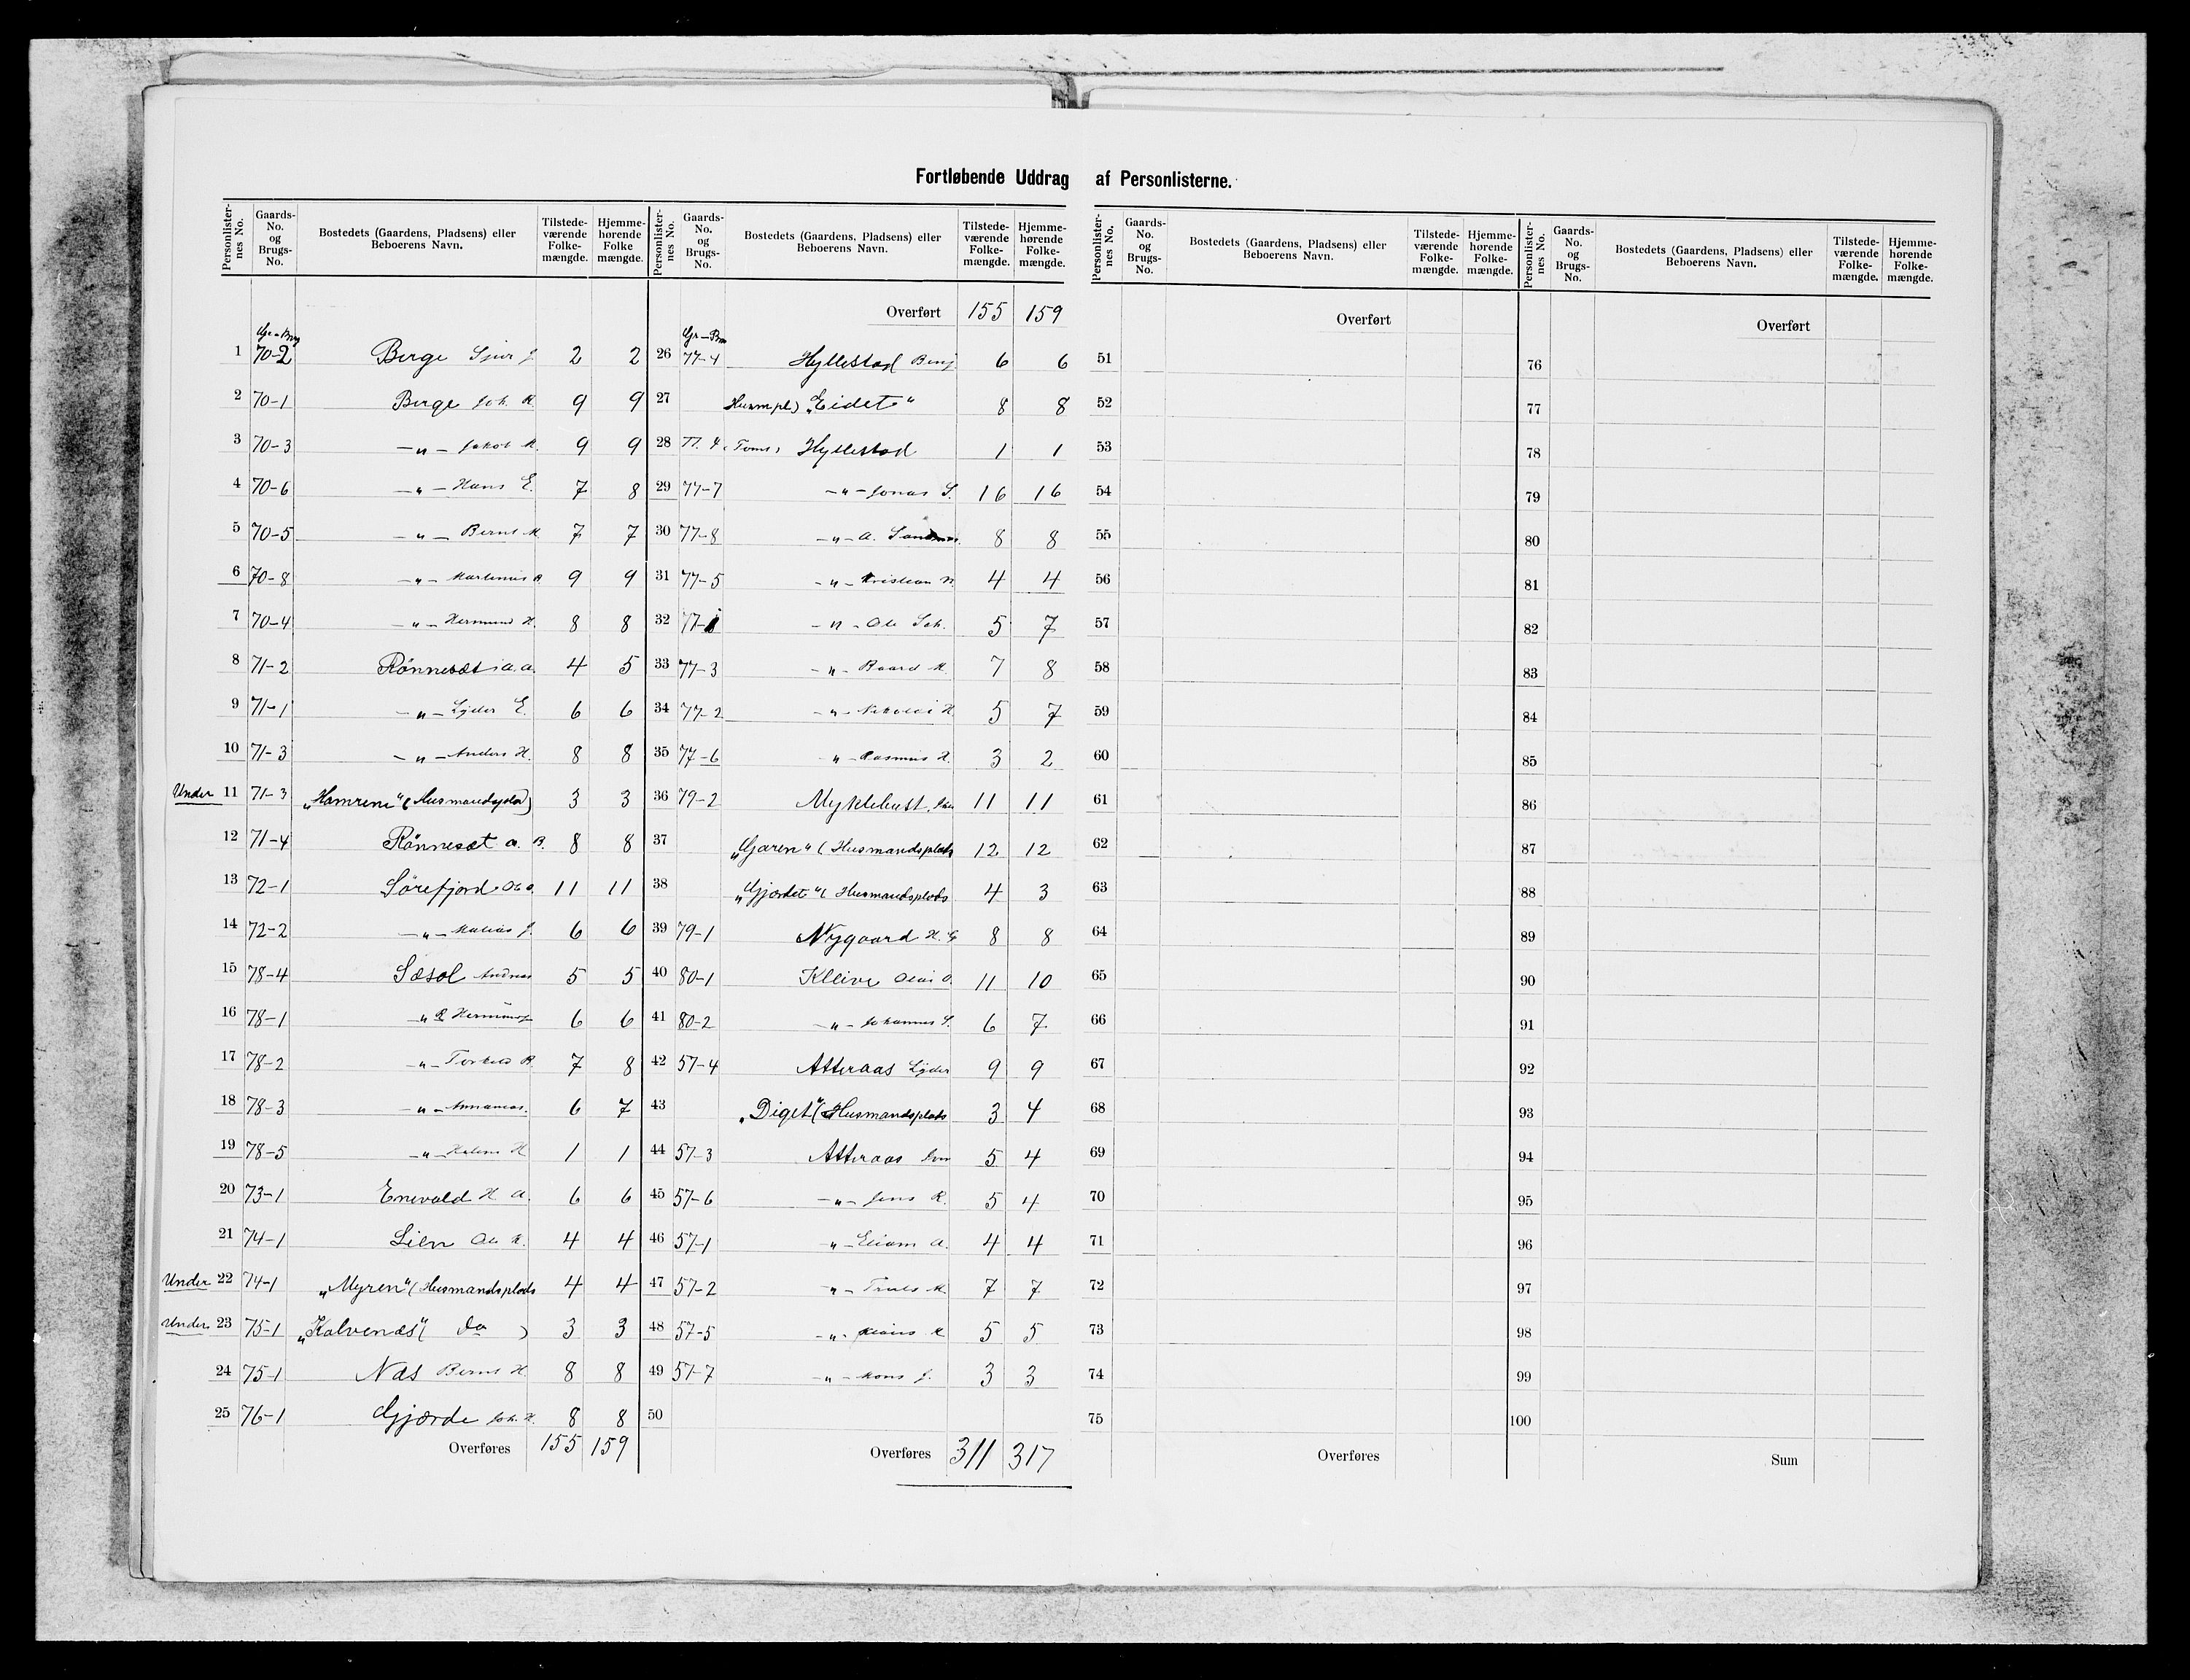 Fortløbende Uddrag af Personlisterne.
Personlisternes No. Gaards-No. og Brugs-No. Bostedets (Gaardens, Pladsens) eller Beboerens Navn. Tilstedeværende Folkemængde. Hjemmehørende Folkemængde.
1 70-2 Berge 2 2
2 70-1 Berge Joh. R. 9 9
3 70-3 —„— Jakob M. 9 9
4 70-6 —„— Hans E. 7 8
5 70-5 —„— Bernt M. 7 7
6 70-8 —„— Martinus R. 9 9
7 70-4 —„— Hermund H. 8 8
8 71-2 Rønnesæt A. A. 4 5
9 71-1 —„— Lyder E. 6 6
10 71-3 —„— Anders H. 8 8
Under 11 71-3 „Hamrene" (Husmandsplad) 3 3
12 71-4 Rønnesæt A. B. 8 8
13 72-1 Sörefjord Ole O. 11 11
14 72-2 —„— Matias J. 6 6
15 78-4 Sæsol Andreas 5 5
16 78-1 „ 6 6
17 78-2 —„— R. 7 8
18 78-3 —„— Annanias. 6 7
19 78-5 —„— H 1 1
20 73-1 Enevald H A. 6 6
21 74-1 Lien Ole 4 4
Under 22 74-1 „Myren" (Husmandsplads 4 4
Under 23 75-1 „Kalvenæs" ( do ) 3 3
24 75-1 Næs Bernt H. 8 8
25 76-1 Gjærde Joh. H. 8 8
Overføres 155 159
Overført 155 159
26 77-4 Hyllestad Benj. 6 6
27 Husmpl) „Eidet" 8 8
28 77. 4 (Tomt) Hyllestad 1 1
29 77-7 —„— Jonas S. 16 16
30 77-8 —„— A. 8 8
31 77-5 —„— Kristian N. 4 4
32 77-1 —„— Ole Joh. 5 7
33 77-3 —„— Baard M. 7 8
34 77-2 —„— Nikolai H. 5 7
35 77-6 „— Rasmus H. 3 2
36 79-2 Myklebust 11 11
37 „Garen" (Husmandsplads 12 12
38 „Gjærdet" (Husmandsplads 4 3
39 79-1 Nygaard H. G 8 8
40 80-1 Kleive Olai O. 11 10
41 80-2 —„— Johannes S. 6 7
42 57-4 Atteraas Lyder 9 9
43 „Diget" (Husmandsplads 3 4
44 57-3 Atteraas 5 4
45 57-6 —„— Jens R. 5 4
46 57-1 „— A. 4 4
47 57-2 „— Truls M. 7 7
48 57-5 —„— 5 5
49 57-7 —„— Mons J. 3 3
50
Overføres 311 317
Personlisternes No. Gaards-No. og Brugs-No. Bostedets (Gaardens, Pladsens) eller Beboerens Navn. Tilstedeværende Folkemængde. Hjemmehørende Folkemængde.
Overført
51
52
53
54
55
56
57
58
59
60
61
62
63
64
65
66
67
68
69
70
71
72
73
74
75
Overføres
Overført
76
77
78
79
80
81
82
83
84
85
86
87
88
89
90
91
92
93
94
95
96
97
98
99
100
Sum